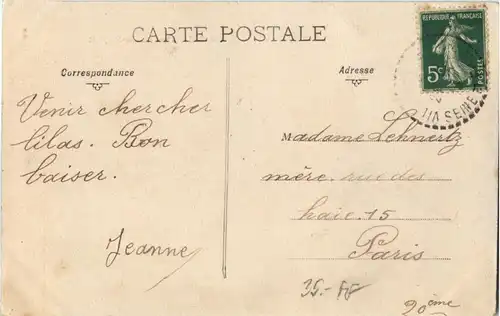 CARTE POSTALE
RÉPUBLIQUE FRANÇAISE
5c
POSTES
SEINE
Correspondance
Adresse
Venir chercher
lilas. Bon
baiser.
Jeanne
Madame Lehnertz
mère. rue des
haie. 15
Paris
20ème
35.-